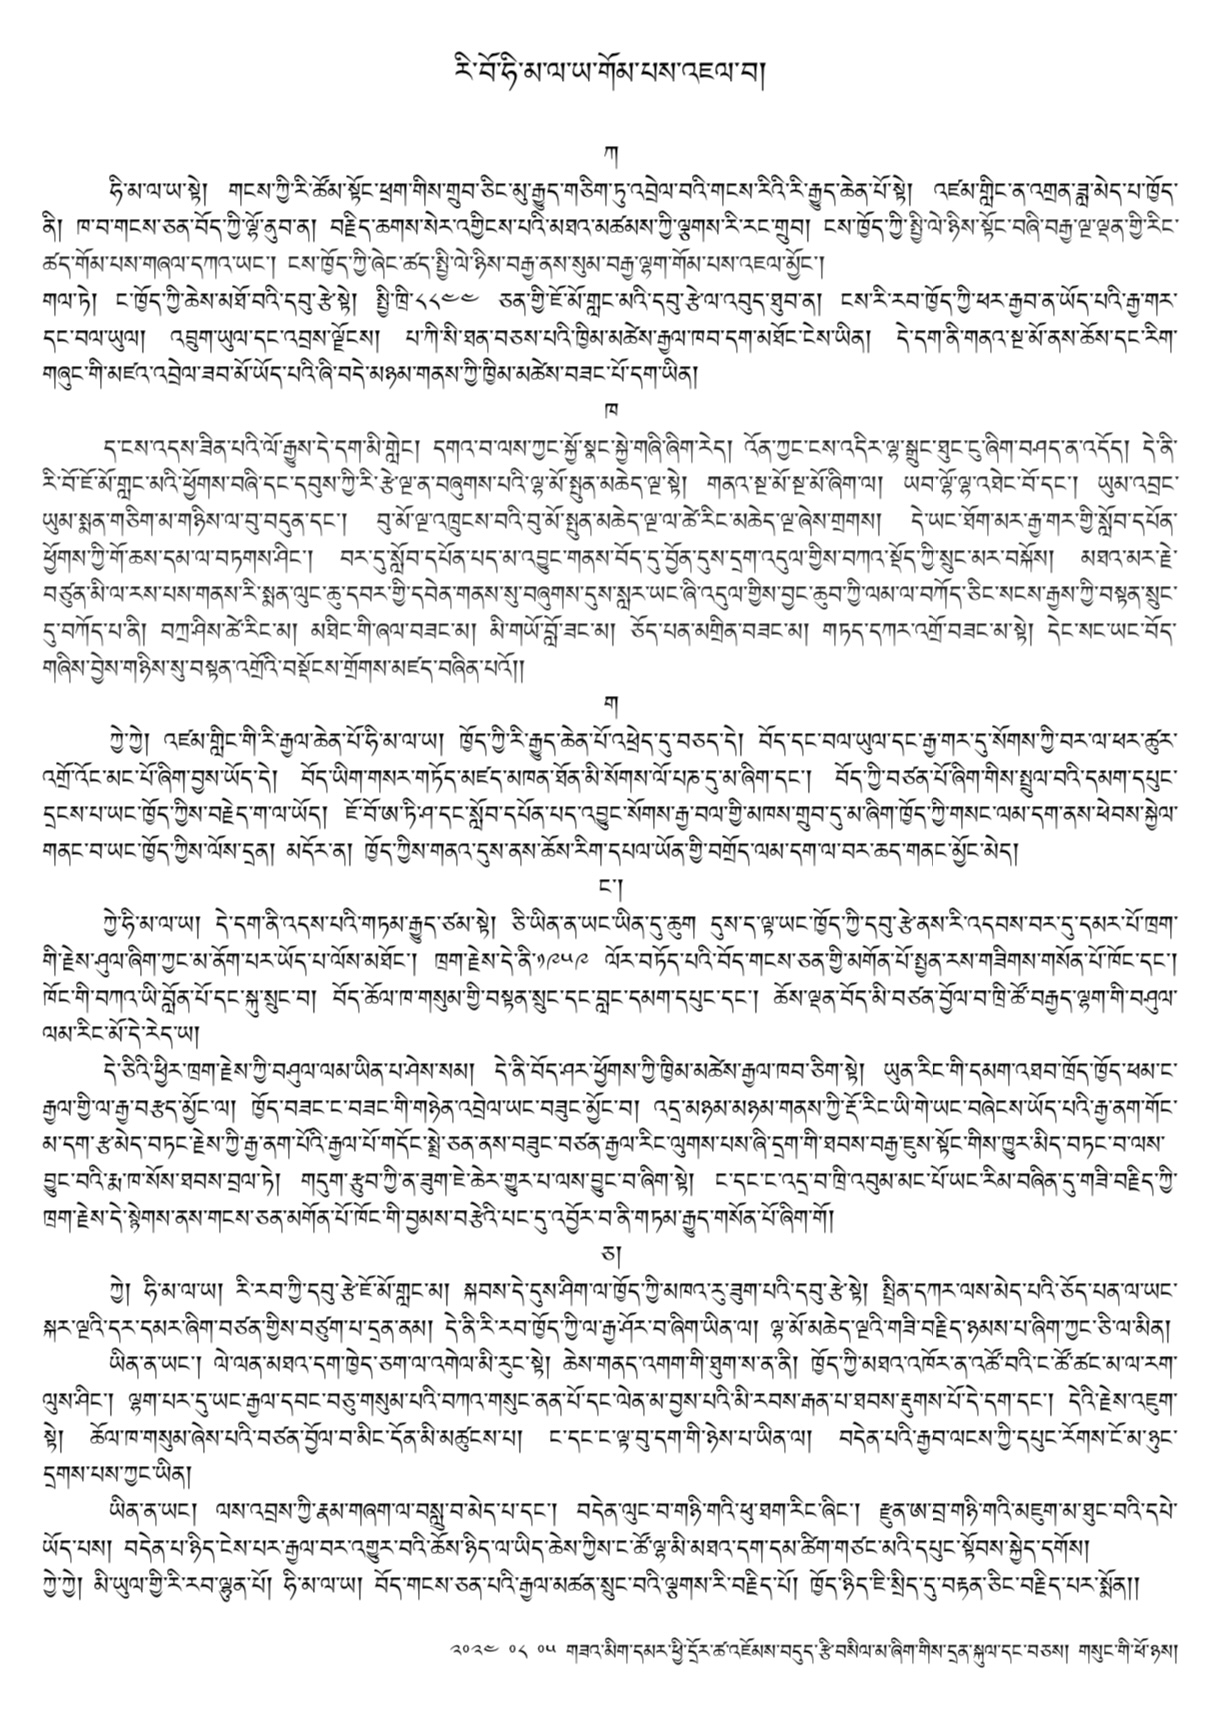 རི་བོ་ཧི་མ་ལ་ཡ་གོམ་པས་འཇལ་བ།
ཀ
ཧི་མ་ལ་ཡ་སྟེ། གངས་ཀྱི་རི་ཚོམ་སྟོང་ཕྲག་གིས་གྲུབ་ཅིང་མུ་རྒྱུད་གཅིག་ཏུ་འབྲེལ་བའི་གངས་རིའི་རི་རྒྱུད་ཆེན་པོ་སྟེ། འཛམ་གླིང་ན་འགྲན་ཟླ་མེད་པ་ཁྱོད་
ནི། ཁ་བ་གངས་ཅན་བོད་ཀྱི་ལྷོ་ནུབ་ན། བརྗིད་ཆགས་སེར་འགྱིངས་པའི་མཐའ་མཚམས་ཀྱི་ལྕགས་རི་རང་གྲུབ། ངས་ཁྱོད་ཀྱི་སྤྱི་ལེ་ཉིས་སྟོང་བཞི་བརྒྱ་ལྔ་ལྡན་གྱི་རིང་
ཚད་གོམ་པས་གཞལ་དཀའ་ཡང་། ངས་ཁྱོད་ཀྱི་ཞེང་ཚད་སྤྱི་ལེ་ཉིས་བརྒྱ་ནས་སུམ་བརྒྱ་ལྷག་གོམ་པས་འཇལ་མྱོང་།
གལ་ཏེ། ང་ཁྱོད་ཀྱི་ཆེས་མཐོ་བའི་དབུ་རྩེ་སྟེ། སྤྱི་ཁྲི་༨༨༤༤ ཅན་གྱི་ཇོ་མོ་གླང་མའི་དབུ་རྩེ་ལ་འབུད་ཐུབ་ན། ངས་རི་རབ་ཁྱོད་ཀྱི་ཕར་རྒྱབ་ན་ཡོད་པའི་རྒྱ་གར་
དང་བལ་ཡུལ། འབྲུག་ཡུལ་དང་འབྲས་ལྗོངས། པ་ཀི་སི་ཐན་བཅས་པའི་ཁྱིམ་མཚེས་རྒྱལ་ཁབ་དག་མཐོང་ངེས་ཡིན། དེ་དག་ནི་གནའ་སྔ་མོ་ནས་ཆོས་དང་རིག་
གཞུང་གི་མཛའ་འབྲེལ་ཟབ་མོ་ཡོད་པའི་ཞི་བདེ་མཉམ་གནས་ཀྱི་ཁྱིམ་མཚེས་བཟང་པོ་དག་ཡིན།
ཁ
ད་ངས་འདས་ཟིན་པའི་ལོ་རྒྱུས་དེ་དག་མི་གླེང། དགའ་བ་ལས་ཀྱང་སྐྱོ་སྣང་སྐྱེ་གཞི་ཞིག་རེད། འོན་ཀྱང་ངས་འདིར་ལྷ་སྒྲུང་ཐུང་ངུ་ཞིག་བཤད་ན་འདོད། དེ་ནི་
རི་བོ་ཇོ་མོ་གླང་མའི་ཕྱོགས་བཞི་དང་དབུས་ཀྱི་རི་རྩེ་ལྔ་ན་བཞུགས་པའི་ལྷ་མོ་སྤུན་མཆེད་ལྔ་སྟེ། གནའ་སྔ་མོ་སྔ་མོ་ཞིག་ལ། ཡབ་ལྷོ་ལྷ་འཐེང་བོ་དང་། ཡུམ་འབྲང་
ཡུམ་སྨན་གཅིག་མ་གཉིས་ལ་བུ་བདུན་དང་། བུ་མོ་ལྔ་འཁྲུངས་བའི་བུ་མོ་སྤུན་མཆེད་ལྔ་ལ་ཚེ་རིང་མཆེད་ལྔ་ཞེས་གྲགས། དེ་ཡང་ཐོག་མར་རྒྱ་གར་གྱི་སློབ་དཔོན་
ཕྱོགས་ཀྱི་གོ་ཆས་དམ་ལ་བཏགས་ཤིང་། བར་དུ་སློབ་དཔོན་པད་མ་འབྱུང་གནས་བོད་དུ་བྱོན་དུས་དྲག་འདུལ་གྱིས་བཀའ་སྡོད་ཀྱི་སྲུང་མར་བསྐོས། མཐའ་མར་རྗེ་
བཙུན་མི་ལ་རས་པས་གནས་རི་སྨན་ལུང་ཆུ་དབར་གྱི་དབེན་གནས་སུ་བཞུགས་དུས་སླར་ཡང་ཞི་འདུལ་གྱིས་བྱང་ཆུབ་ཀྱི་ལམ་ལ་བཀོད་ཅིང་སངས་རྒྱས་ཀྱི་བསྟན་སྲུང་
དུ་བཀོད་པ་ནི། བཀྲ་ཤིས་ཚེ་རིང་མ། མཐིང་གི་ཞལ་བཟང་མ། མི་གཡོ་བློ་བཟང་མ། ཅོད་པན་མགྲིན་བཟང་མ། གཏད་དཀར་འགྲོ་བཟང་མ་སྟེ། དེང་སང་ཡང་བོད་
གཞིས་བྱེས་གཉིས་སུ་བསྟན་འགྲོའི་བསྡོངས་གྲོགས་མཛད་བཞིན་པའོ།།
ག
ཀྱེ་ཀྱེ། འཛམ་གླིང་གི་རི་རྒྱལ་ཆེན་པོ་ཧི་མ་ལ་ཡ། ཁྱོད་ཀྱི་རི་རྒྱུད་ཆེན་པོ་འཕྲེད་དུ་བཅད་དེ། བོད་དང་བལ་ཡུལ་དང་རྒྱ་གར་དུ་སོགས་ཀྱི་བར་ལ་ཕར་ཚུར་
འགྲོ་འོང་མང་པོ་ཞིག་བྱས་ཡོད་དེ། བོད་ཡིག་གསར་གཏོད་མཛད་མཁན་ཐོན་མི་སོགས་ལོ་པཎ་དུ་མ་ཞིག་དང་། བོད་ཀྱི་བཙན་པོ་ཞིག་གིས་སྤྲུལ་བའི་དམག་དཔུང་
དྲངས་པ་ཡང་ཁྱོད་ཀྱིས་བརྗེད་ག་ལ་ཡོད། ཇོ་བོ་ཨ་ཏི་ཤ་དང་སློབ་དཔོན་པད་འབྱུང་སོགས་རྒྱ་བལ་གྱི་མཁས་གྲུབ་དུ་མ་ཞིག་ཁྱོད་ཀྱི་གསང་ལམ་དག་ནས་ཕེབས་སྐྱེལ་
གནང་བ་ཡང་ཁྱོད་ཀྱིས་ལོས་དྲན། མདོར་ན། ཁྱོད་ཀྱིས་གནའ་དུས་ནས་ཆོས་རིག་དཔལ་ཡོན་གྱི་བགྲོད་ལམ་དག་ལ་བར་ཆད་གནང་མྱོང་མེད།
ང་།
ཀྱེ་ཧི་མ་ལ་ཡ། དེ་དག་ནི་འདས་པའི་གཏམ་རྒྱུད་ཙམ་སྟེ། ཅི་ཡིན་ན་ཡང་ཡིན་དུ་ཆུག དུས་ད་ལྟ་ཡང་ཁྱོད་ཀྱི་དབུ་རྩེ་ནས་རི་འདབས་བར་དུ་དམར་པོ་ཁྲག་
གི་རྗེས་ཤུལ་ཞིག་ཀྱང་མ་ནོག་པར་ཡོད་པ་ལོས་མཐོང་། ཁྲག་རྗེས་དེ་ནི་༡༩༥༩ ལོར་བཏོད་པའི་བོད་གངས་ཅན་གྱི་མགོན་པོ་སྤྱན་རས་གཟིགས་གསོན་པོ་ཁོང་དང་།
ཁོང་གི་བཀའ་ཡི་བློན་པོ་དང་སྐུ་སྲུང་བ། བོད་ཆོལ་ཁ་གསུམ་གྱི་བསྟན་སྲུང་དང་བླང་དམག་དཔུང་དང་། ཆོས་ལྡན་བོད་མི་བཙན་བྱོལ་བ་ཁྲི་ཚོ་བརྒྱད་ལྷག་གི་བཤུལ་
ལམ་རིང་མོ་དེ་རེད་ཡ།
དེ་ཅིའི་ཕྱིར་ཁྲག་རྗེས་ཀྱི་བཤུལ་ལམ་ཡིན་པ་ཤེས་སམ། དེ་ནི་བོད་ཤར་ཕྱོགས་ཀྱི་ཁྱིམ་མཚེས་རྒྱལ་ཁབ་ཅིག་སྟེ། ཡུན་རིང་གི་དམག་འཐབ་ཁྲོད་ཁྱོད་ཕམ་ང་
རྒྱལ་གྱི་ལ་རྒྱ་བརྩད་མྱོང་ལ། ཁྱོད་བཟང་ང་བཟང་གི་གཉེན་འབྲེལ་ཡང་བཟུང་མྱོང་བ། འདྲ་མཉམ་མཉམ་གནས་ཀྱི་རྡོ་རིང་ཡི་གེ་ཡང་བཞེངས་ཡོད་པའི་རྒྱ་ནག་གོང་
མ་དག་རྩ་མེད་བཏང་རྗེས་ཀྱི་རྒྱ་ནག་པོའི་རྒྱལ་པོ་གདོང་སྨྲེ་ཅན་ནས་བཟུང་བཙན་རྒྱལ་རིང་ལུགས་པས་ཞི་དྲག་གི་ཐབས་བརྒྱ་ཇུས་སྟོང་གིས་ཁྱུར་མིད་བཏང་བ་ལས་
བྱུང་བའི་རྨ་ཁ་སོས་ཐབས་བྲལ་ཏེ། གདུག་རྩུབ་ཀྱི་ན་ཟུག་ཇེ་ཆེར་གྱུར་པ་ལས་བྱུང་བ་ཞིག་སྟེ། ང་དང་ང་འདྲ་བ་ཁྲི་འབུམ་མང་པོ་ཡང་རིམ་བཞིན་དུ་གཟི་བརྗིད་ཀྱི་
ཁྲག་རྗེས་དེ་སྙེགས་ནས་གངས་ཅན་མགོན་པོ་ཁོང་གི་བྱམས་བརྩེའི་པང་དུ་འབྱོར་བ་ནི་གཏམ་རྒྱུད་གསོན་པོ་ཞིག་གོ།
ཅ།
ཀྱེ། ཧི་མ་ལ་ཡ། རི་རབ་ཀྱི་དབུ་རྩེ་ཇོ་མོ་གླང་མ། སྐབས་དེ་དུས་ཤིག་ལ་ཁྱོད་ཀྱི་མཁའ་རུ་ཟུག་པའི་དབུ་རྩེ་སྟེ། སྤྲིན་དཀར་ལས་མེད་པའི་ཅོད་པན་ལ་ཡང་
སྐར་ལྔའི་དར་དམར་ཞིག་བཙན་གྱིས་བཙུག་པ་དྲན་ནམ། དེ་ནི་རི་རབ་ཁྱོད་ཀྱི་ལ་རྒྱ་ཤོར་བ་ཞིག་ཡིན་ལ། ལྷ་མོ་མཆེད་ལྔའི་གཟི་བརྗིད་ཉམས་པ་ཞིག་ཀྱང་ཅི་ལ་མིན།
ཡིན་ན་ཡང་། ལེ་ལན་མཐའ་དག་ཁྱེད་ཅག་ལ་འགེལ་མི་རུང་སྟེ། ཆེས་གནད་འགག་གི་ཐུག་ས་ན་ནི། ཁྱོད་ཀྱི་མཐའ་འཁོར་ན་འཚོ་བའི་ང་ཚོ་ཚང་མ་ལ་རག་
ལུས་ཤིང་། ལྷག་པར་དུ་ཡང་རྒྱལ་དབང་བཅུ་གསུམ་པའི་བཀའ་གསུང་ནན་པོ་དང་ལེན་མ་བྱས་པའི་མི་རབས་རྒན་པ་ཐབས་རྡུགས་པོ་དེ་དག་དང་། དེའི་རྗེས་འཇུག་
སྟེ། ཆོལ་ཁ་གསུམ་ཞེས་པའི་བཙན་བྱོལ་བ་མིང་དོན་མི་མཚུངས་པ། ང་དང་ང་ལྟ་བུ་དག་གི་ཉེས་པ་ཡིན་ལ། བདེན་པའི་རྒྱབ་ལངས་ཀྱི་དཔུང་རོགས་ངོ་མ་ཉུང་
དྲགས་པས་ཀྱང་ཡིན།
ཡིན་ན་ཡང། ལས་འབྲས་ཀྱི་རྣམ་གཞག་ལ་བསླུ་བ་མེད་པ་དང་། བདེན་ལུང་བ་གཉི་གའི་ཕུ་ཐག་རིང་ཞིང་། རྫུན་ཨ་བྲ་གཉི་གའི་མཇུག་མ་ཐུང་བའི་དཔེ་
ཡོད་པས། བདེན་པ་ཉིད་ངེས་པར་རྒྱལ་བར་འགྱུར་བའི་ཆོས་ཉིད་ལ་ཡིད་ཆེས་ཀྱིས་ང་ཚོ་ལྷ་མི་མཐའ་དག་དམ་ཚིག་གཙང་མའི་དཔུང་སྟོབས་སྐྱེད་དགོས།
ཀྱེ་ཀྱེ། མི་ཡུལ་གྱི་རི་རབ་ལྷུན་པོ། ཧི་མ་ལ་ཡ། བོད་གངས་ཅན་པའི་རྒྱལ་མཚན་སྲུང་བའི་ལྕགས་རི་བརྗིད་པོ། ཁྱོད་ཉིད་ཇི་སྲིད་དུ་བརྟན་ཅིང་བརྗིད་པར་སྨོན།།
༢༠༢༤ ༠༨ ༠༥ གཟའ་མིག་དམར་ཕྱི་དྲོར་ཚ་འཇོམས་བདུད་རྩི་བསིལ་མ་ཞིག་གིས་དྲན་སྐུལ་དང་བཅས། གསུང་གི་ཕོ་ཉས།